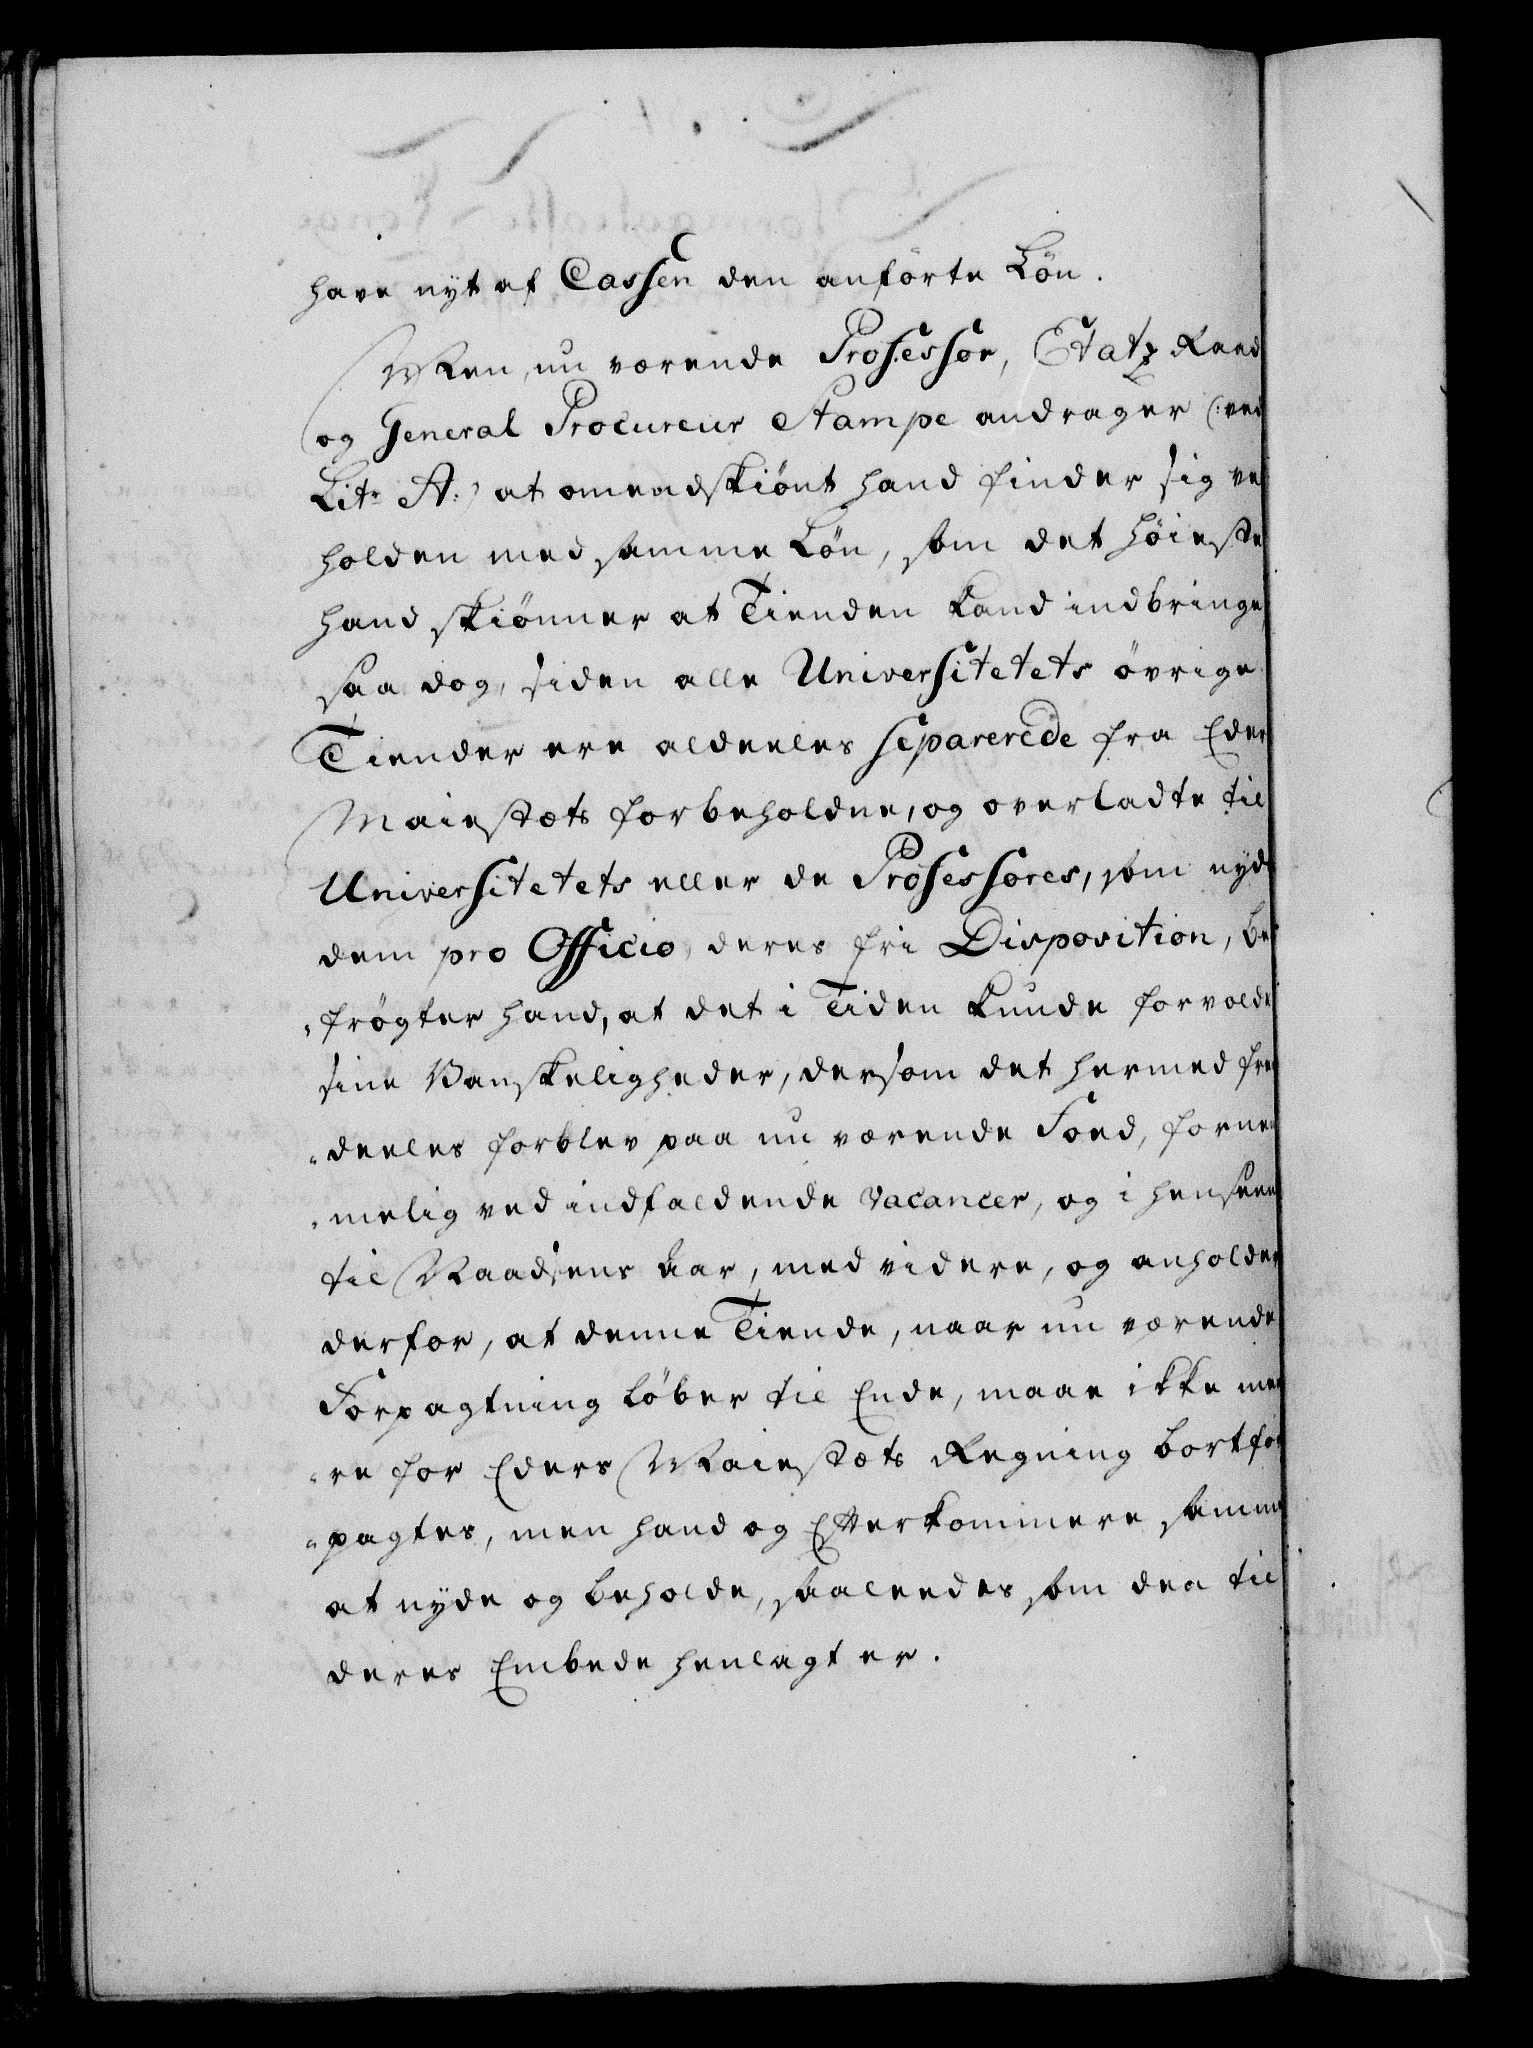 have nyt af Cassen den anførte Løn.
Men, nu værende Professor, Etatz Raad
og General Procureur Stampe andrager (: ved
Litr A:) at omendskiønt hand finder sig vel
holden med samme Løn, som det høieste
hand skiønner at Tienden kand indbringe,
saa dog, siden alle Universitetets øvrige
Tiender ere aldeeles separerede fra Eders
Maiestæts forbeholdne, og overladte til
Universitetets eller de Professores, som nyde
dem pro Officio, deres fri Disposition, be
„frøgter hand, at det i Tiden kunde forvolde
sine Vanskeligheder, dersom det hermed frem
„deeles forblev paa nu værende Foed, fornem
„melig ved indfaldende Vacancer, og i henseende
til Naadsens Aar, med videre, og anholder
derfor, at denne Tiende, naar nu værende
Forpagtning løber til Ende, maae ikke mee
„re for Eders Maiestæts Regning bortfor
„pagtes, men hand og Efterkommere samme
at nyde og beholde, saaleedes som den til
deres Embede henlagt er.